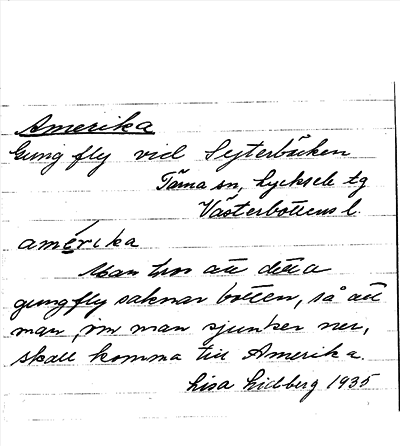 Amerika
Gungfly vid Syterbäcken
Tärna sn, Lycksele tg
Västerbottens l.
amérika
Man tror att detta
gungfly saknar botten, så att
man, om man sjunker ner,
skall komma till Amerika.
Lisa Lidberg 1935